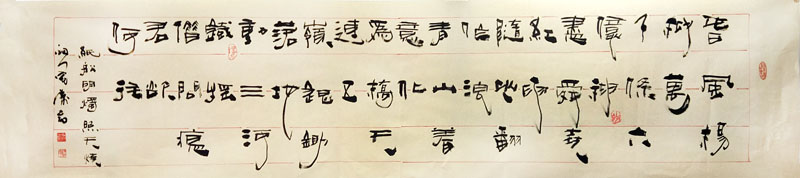 春風楊
柳萬
千條六
億神
盡舜堯
紅雨
隨心翻
作浪
青山着
意化
為橋天
連五
嶺銀鋤
落地
動三河
鐵搖
借問瘟
君欲
何往
紙船明燭照天燒